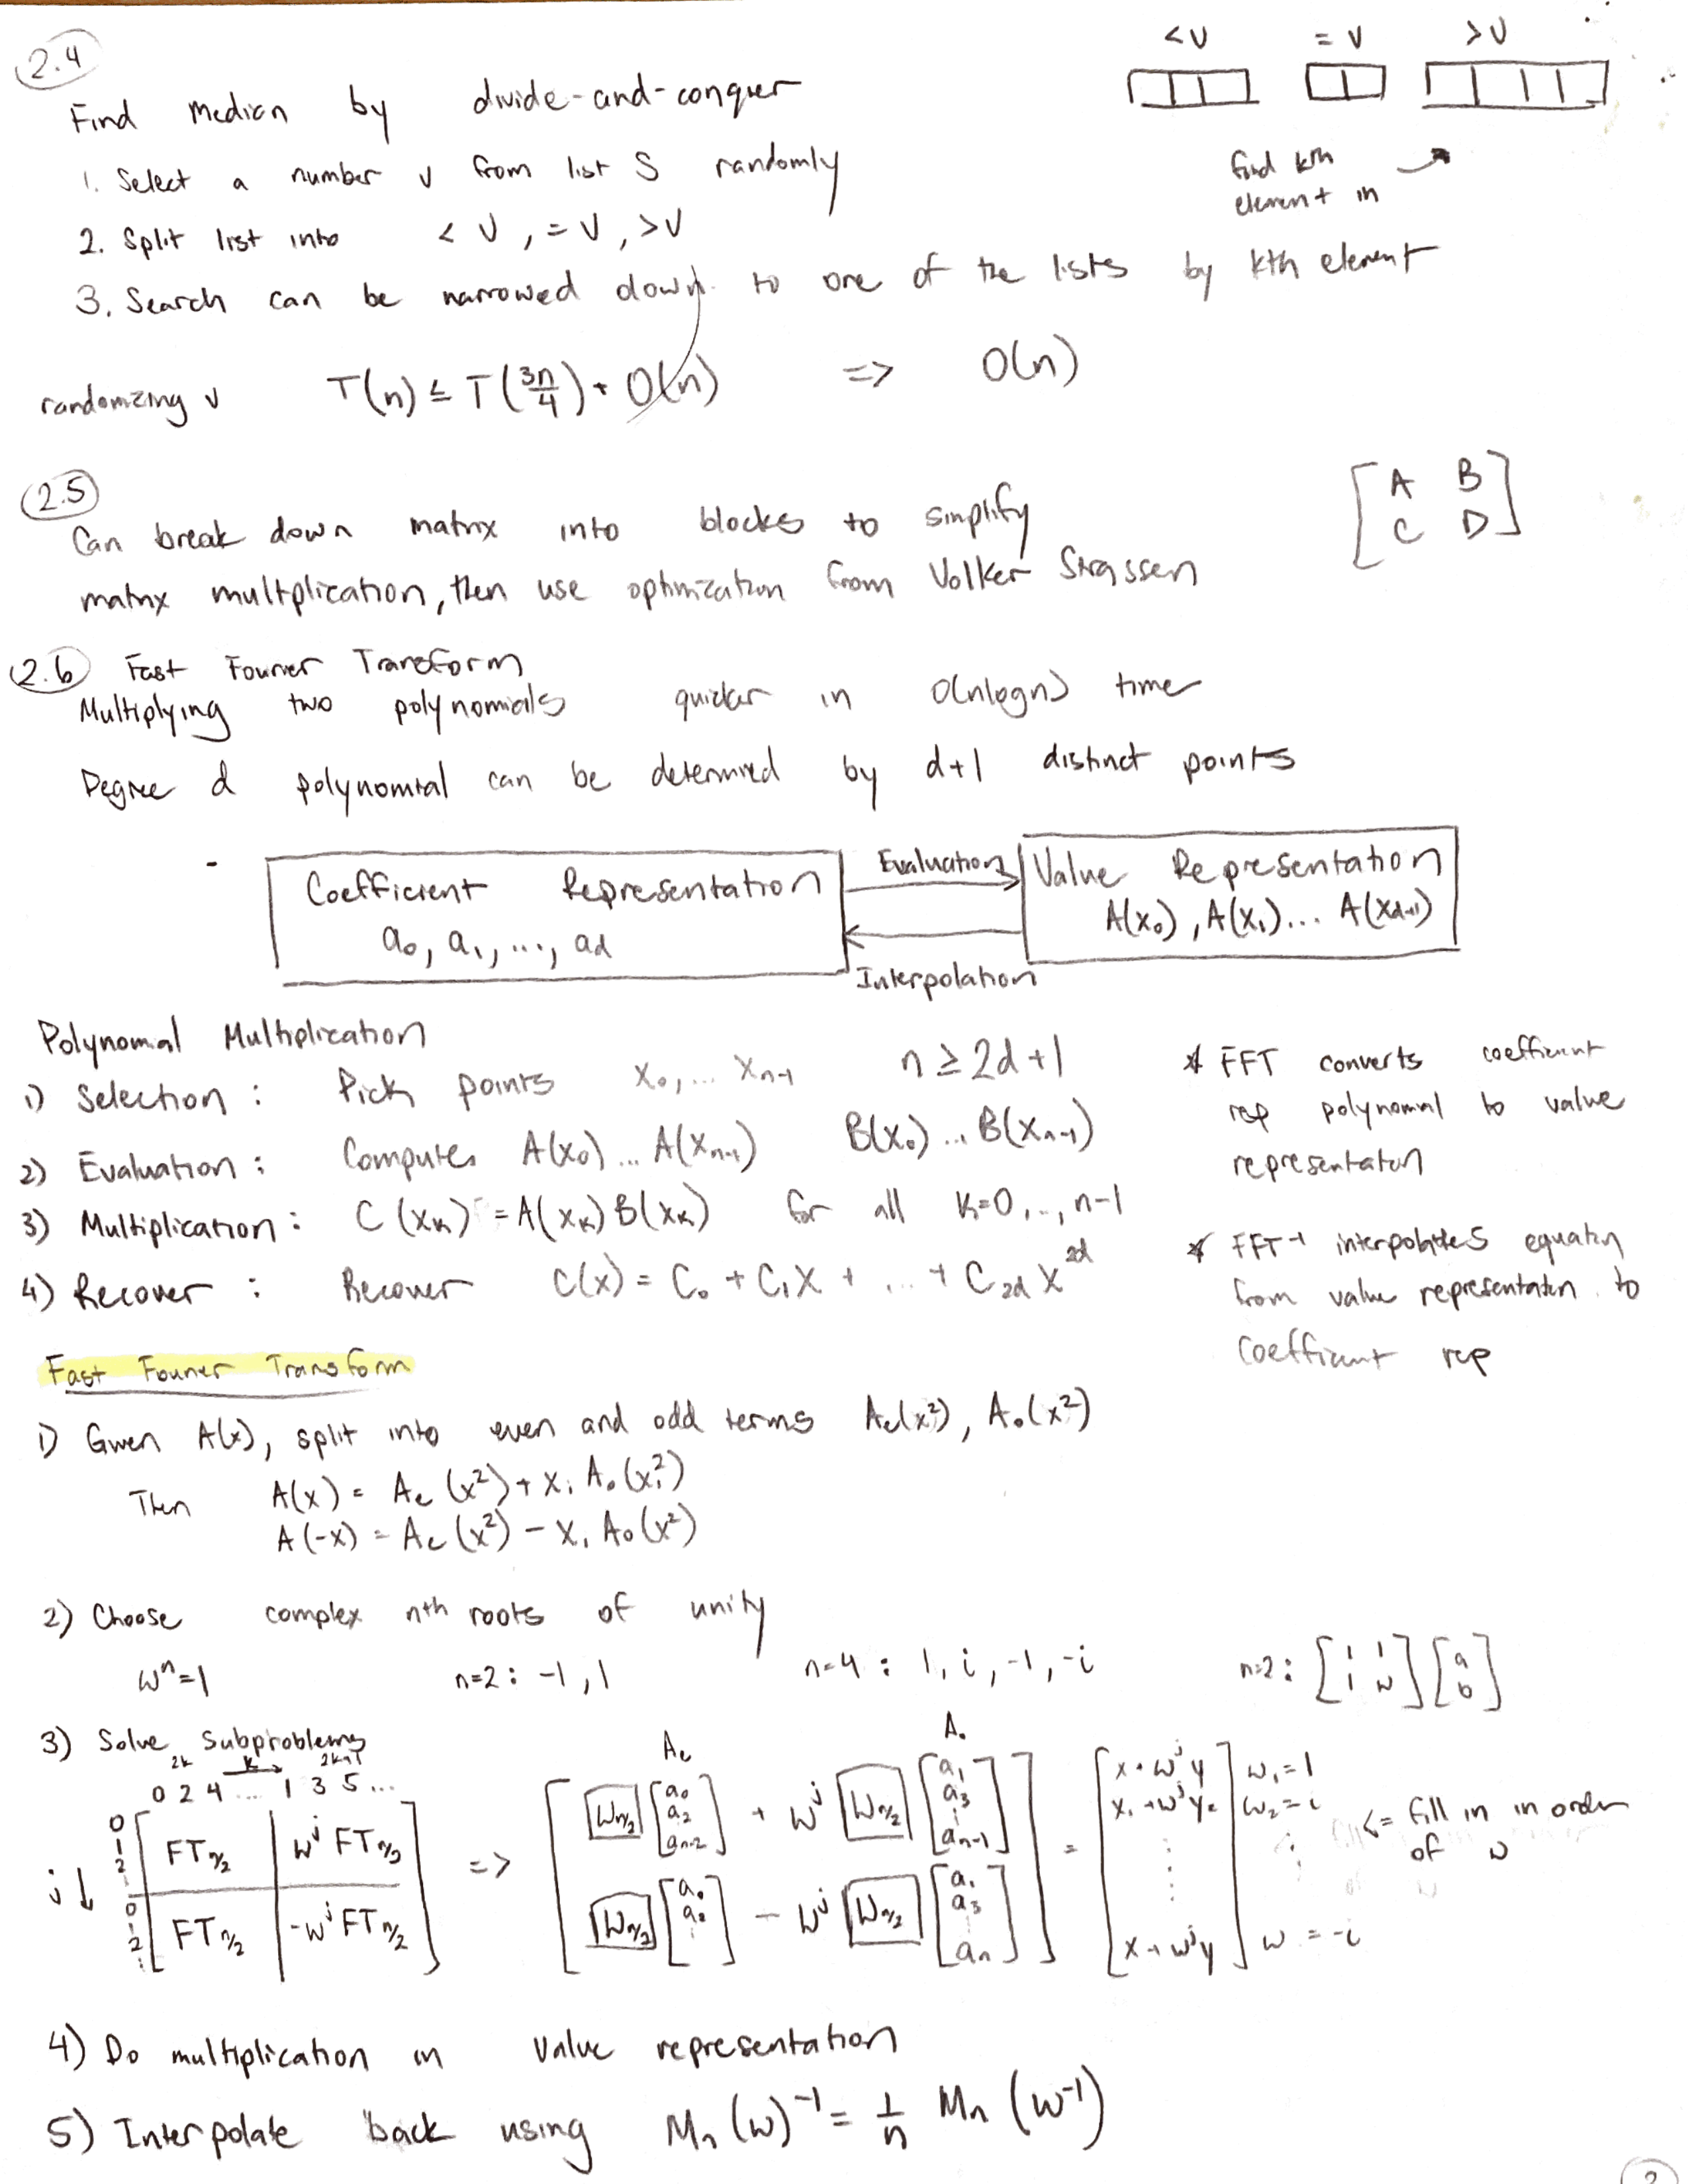 2.4
<V   = V   >V
Find Median by divide-and-conquer
1. Select a number v from list S randomly
find kth
element in
2. Split list into < V, = V, >V
3. Search can be narrowed down to one of the lists by kth element
randomizing v   T(n) ≤ T(3n/4) + O(n)   =>   O(n)
2.5
[A B
C D]
Can break down matrix into blocks to simplify
matrix multplication, then use optimization from Volker Strassen
2.6 Fast Fourier Transform
Multiplying two polynomials quicker in O(nlogn) time
Degree d polynomial can be determined by d+1 distinct points
Coefficient Representation
a₀, a₁, ..., a_d
Evaluation
Interpolation
Value Representation
A(x₀), A(x₁)... A(x_{d+1})
Polynomial Multiplication
1) Selection : Pick points x₀,... x_{n-1}   n ≥ 2d+1
2) Evaluation : Computes A(x₀) ... A(x_{n-1})   B(x₀) ... B(x_{n-1})
3) Multiplication : C(x_k) = A(x_k) B(x_k) for all k=0,..., n-1
4) Recover : Recover C(x) = C₀ + C₁x + ... + C_{2d} x^{2d}
* FFT converts coefficient
rep polynomial to value
representation
* FFT⁻¹ interpolates equation
from value representation to
coefficient rep
Fast Fourier Transform
1) Given A(x), split into even and odd terms A_e(x²), A_o(x²)
Then A(x) = A_e(x²) + x_i A_o(x_i²)
A(-x) = A_e(x²) - x_i A_o(x²)
2) Choose complex nth roots of unity
ωⁿ=1   n=2 : -1, 1   n=4 : 1, i, -1, -i   n=2 : [1 1 1 ω] [a b]
3) Solve Subproblems
2k   k   2k+1
0 2 4 ... 1 3 5 ...
j ↓
0 1 2
FT_{n/2}   ω^j FT_{n/2}
0 1 2
FT_{n/2}   -ω^j FT_{n/2}
=>
A_e   A_o
[W_{n/2}] [a₀ a₂ a_{n-2}] + ω^j [W_{n/2}] [a₁ a₃ a_{n-1}]
[W_{n/2}] [a₀ a₂] - ω^j [W_{n/2}] [a₁ a₃ a_n]
=
x + ω^j y   ω₁ = 1
x₁ + ω^j y₂   ω₂ = i
x + ω^j y   ω = -i
<= fill in in order
of ω
4) Do multiplication in value representation
5) Interpolate back using M_n(ω)⁻¹ = 1/n M_n(ω⁻¹)